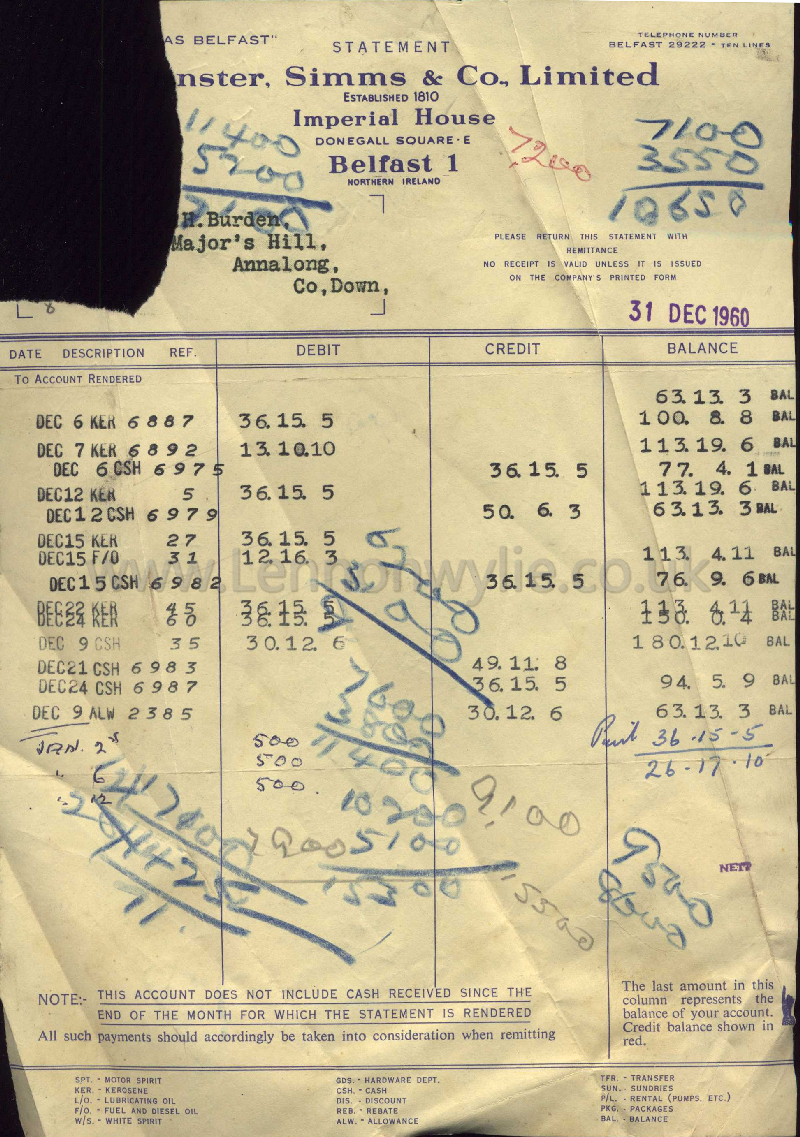 AS BELFAST"
STATEMENT
TELEPHONE NUMBER
BELFAST 29222 - TEN LINES
nster, Simms & Co., Limited
ESTABLISHED 1810
Imperial House
DONEGALL SQUARE · E
Belfast 1
NORTHERN IRELAND
11400
5700
7200
7100
3550
10650
H.Burden,
Major's Hill,
Annalong,
Co,Down,
PLEASE RETURN THIS STATEMENT WITH
REMITTANCE
NO RECEIPT IS VALID UNLESS IT IS ISSUED
ON THE COMPANY'S PRINTED FORM
8
31 DEC 1960
DATE DESCRIPTION REF. DEBIT CREDIT BALANCE
TO ACCOUNT RENDERED
63.13. 3 BAL
DEC 6 KER 6887 36.15. 5 100. 8. 8 BAL
DEC 7 KER 6892 13.10.10 113.19. 6 BAL
DEC 6 CSH 6975 36.15. 5 77. 4. 1 BAL
DEC12 KER 5 36.15. 5 113.19. 6 BAL
DEC12 CSH 6979 50. 6. 3 63.13. 3 BAL
DEC15 KER 27 36.15. 5
DEC15 F/O 31 12.16. 3 113. 4.11 BAL
DEC15 CSH 6982 36.15. 5 76. 9. 6 BAL
DEC22 KER 45 36.15. 5 113. 4.11 BAL
DEC24 KER 60 36.15. 5 150. 0. 4 BAL
DEC 9 CSH 35 30.12. 6 180.12.10 BAL
DEC21 CSH 6983 49.11. 8
DEC24 CSH 6987 36.15. 5 94. 5. 9 BAL
DEC 9 ALW 2385 30.12. 6 63.13. 3 BAL
www.Lennonwylie.co.uk
JAN. 2 500
" 6 500
" 12 500.
Paid 36-15-5
26-17-10
7600
3800
11400
10200
5100
15300
7900
9100
15500
9500
8000
71.
NETT
NOTE:- THIS ACCOUNT DOES NOT INCLUDE CASH RECEIVED SINCE THE
END OF THE MONTH FOR WHICH THE STATEMENT IS RENDERED
All such payments should accordingly be taken into consideration when remitting
The last amount in this
column represents the
balance of your account.
Credit balance shown in
red.
SPT. - MOTOR SPIRIT
KER. - KEROSENE
L/O. - LUBRICATING OIL
F/O. - FUEL AND DIESEL OIL
W/S. - WHITE SPIRIT
GDS. - HARDWARE DEPT.
CSH. - CASH
DIS. - DISCOUNT
REB. - REBATE
ALW. - ALLOWANCE
TFR. - TRANSFER
SUN. - SUNDRIES
P/L. - RENTAL (PUMPS. ETC.)
PKG. - PACKAGES
BAL. - BALANCE